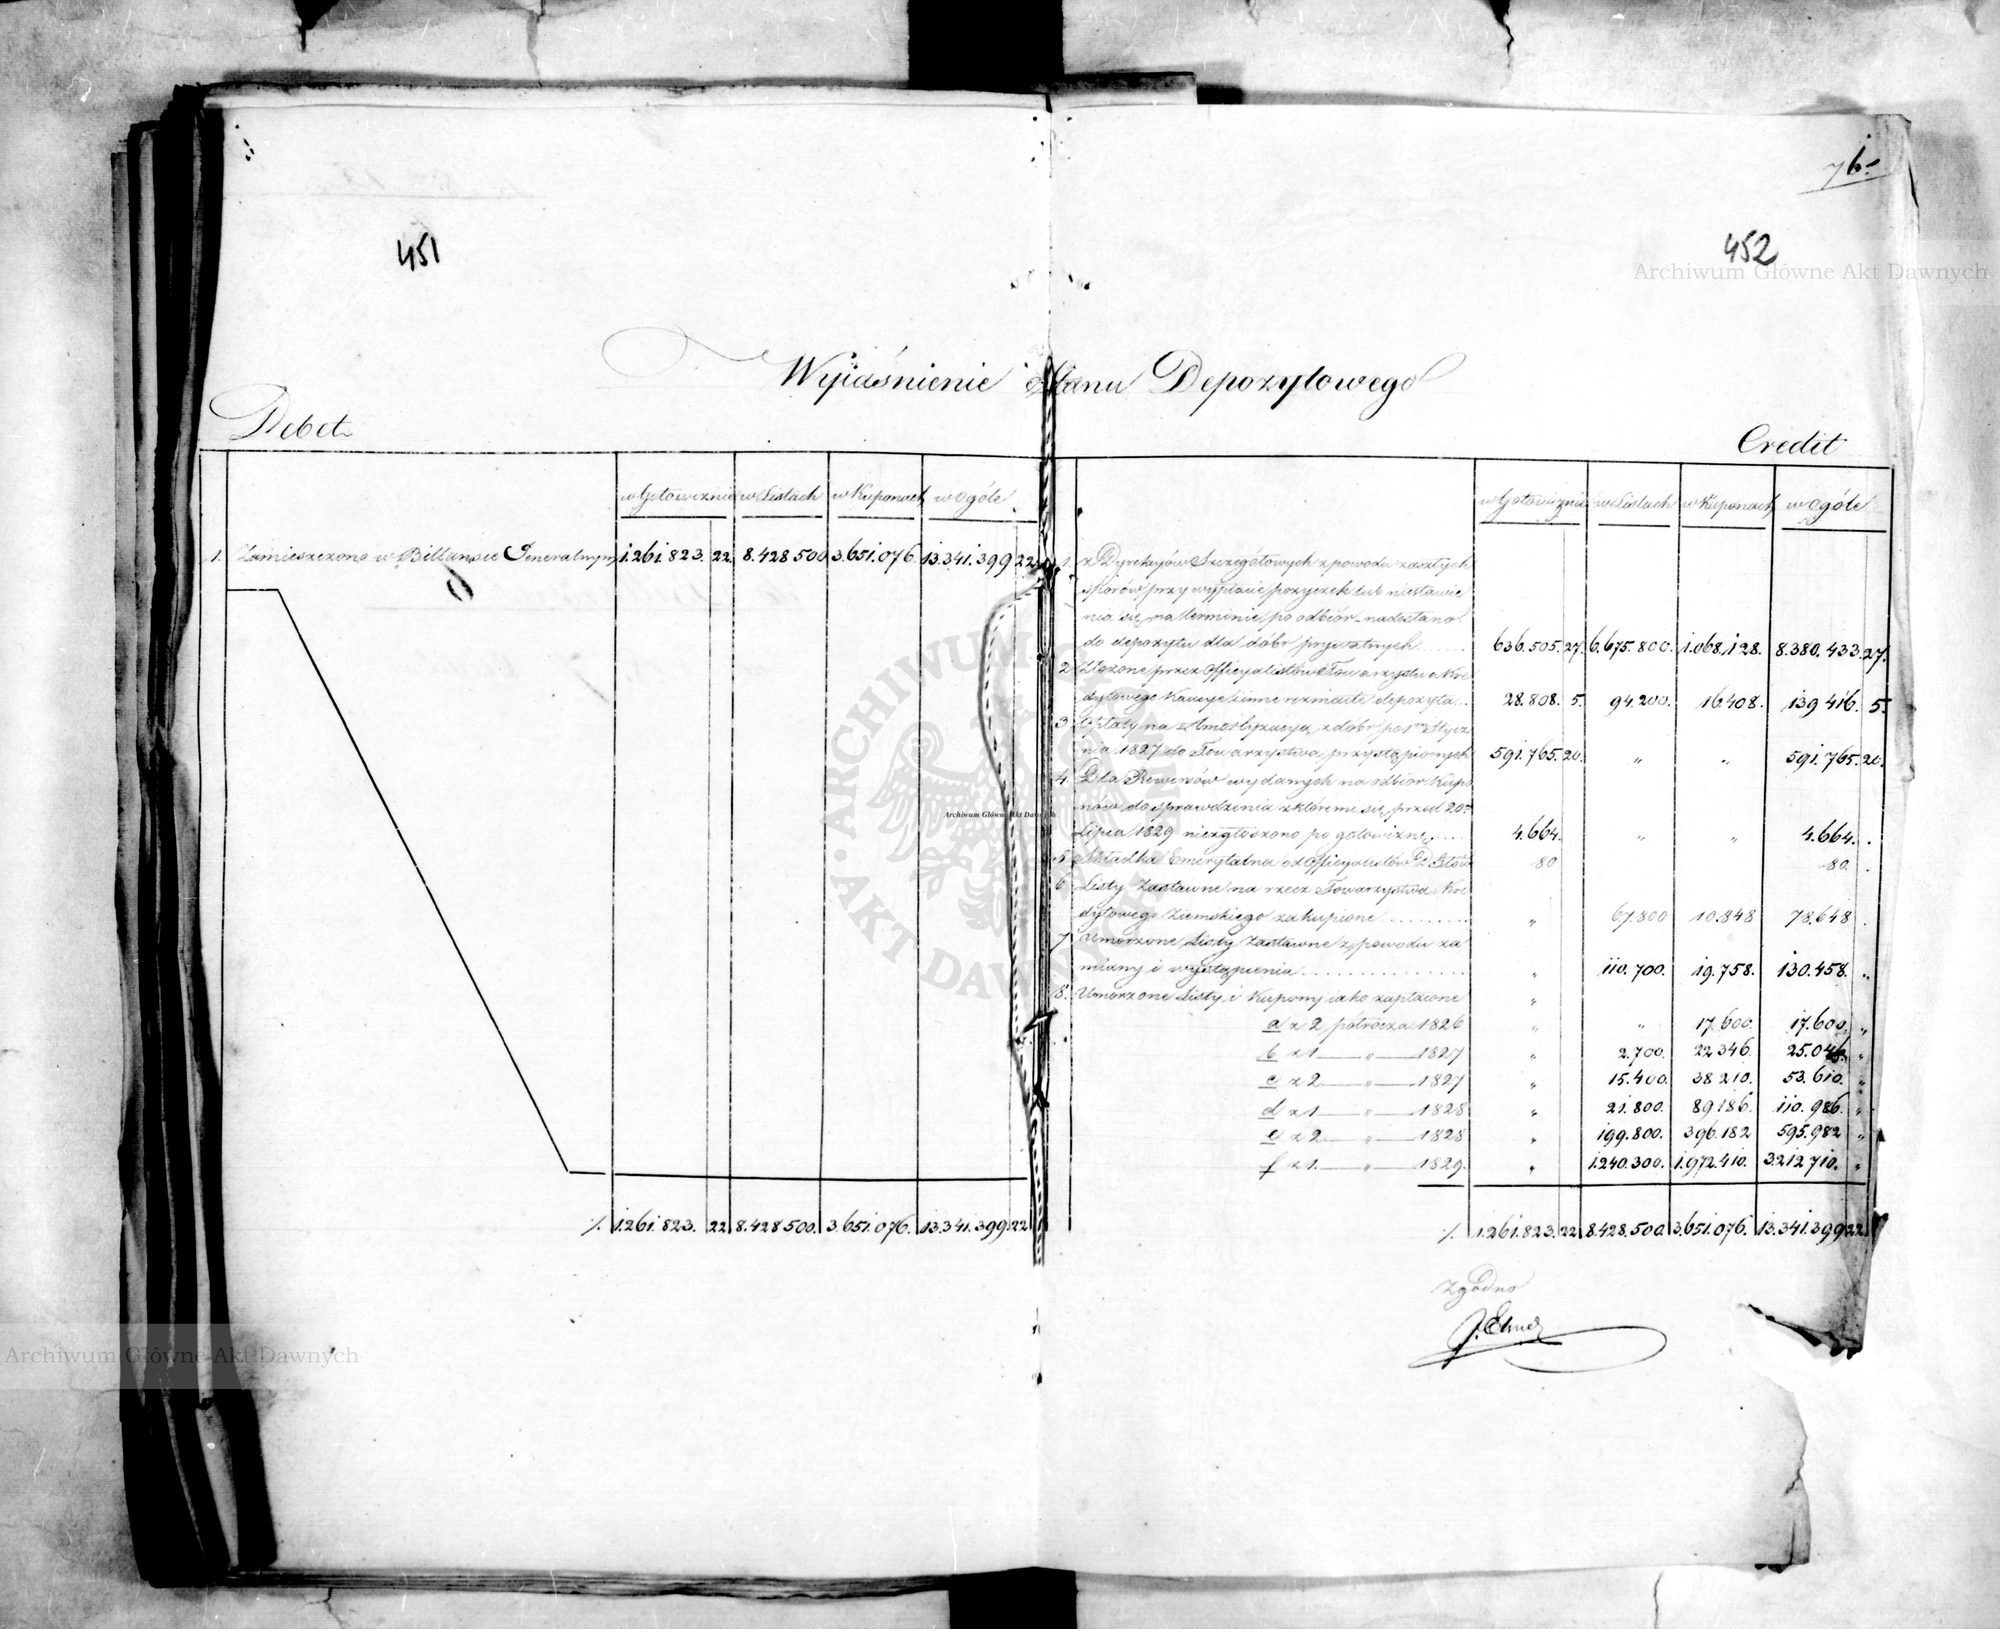 76.
451
452
Archiwum Główne Akt Dawnych
Wyiaśnienie Stanu Depozytowego
Debet
Credit
w Gotowiznie w Listach w Kuponach w ogóle
1. Zamieszczono w Billansie Generalnym 1.261.823. 22 8.428.500 3.651.076. 13.341.399 22
w Gotowiznie w Listach w Kuponach w ogóle
1. z Dyrekcyów Szczegółowych z powodu zaszłych
sporów przy wypłacie pożyczek lub niestawie
nia się na terminie po odbiór nadesłano
do depozytu dla dóbr prywatnych 636.505. 27. 6.675.800. 1.068.128. 8.380.433. 27.
2 Złożone przez Officyalistów Towarzystwa Kre
dytowego Kaucye i inne rozmaite depozyta 28.808. 5. 94.200. 16.408. 139.416. 5.
3 Opłaty na Amortyzacyą z dóbr po 1ym Stycz
nia 1827 do Towarzystwa przystąpionych 591.765. 20. " " 591.765. 20.
4. Dla Rewersów wydanych na odbiór Kupo
nów do sprawdzenia z któremi się przed 20m
Lipca 1829 niezgłoszono po gotowiznę 4.664. " " 4.664. .
5 Składka Emerytalna od Officyalistów 80 80. .
6 Listy Zastawne na rzecz Towarzystwa Kre
dytowego Ziemskiego zakupione " 67.800 10.848 78.648 .
7 Umorzone Listy Zastawne z powodu za
miany i wystąpienia " 110.700. 19.758. 130.458. "
8. Umorzone Listy i Kupony iako zapłacone "
a z 2 półrocza 1826 " " 17.600. 17.600. "
b z 1 — " — 1827 " 2.700. 22.346. 25.046. "
c z 2 — " — 1827 " 15.400. 38.210. 53.610. "
d z 1 — " — 1828 " 21.800. 89.186. 110.986. "
e z 2 — " — 1828 " 199.800. 396.182 595.982 "
f z 1. — " — 1829. " 1.240.300. 1.972.410. 3.212.710. "
/. 1.261.823. 22 8.428.500. 3.651.076. 13.341.399 22
/. 1.261.823. 22 8.428.500. 3.651.076. 13.341.399 22
Zgodno
ARCHIWUM GŁÓWNE AKT DAWNYCH
Archiwum Główne Akt Dawnych
Archiwum Główne Akt Dawnych